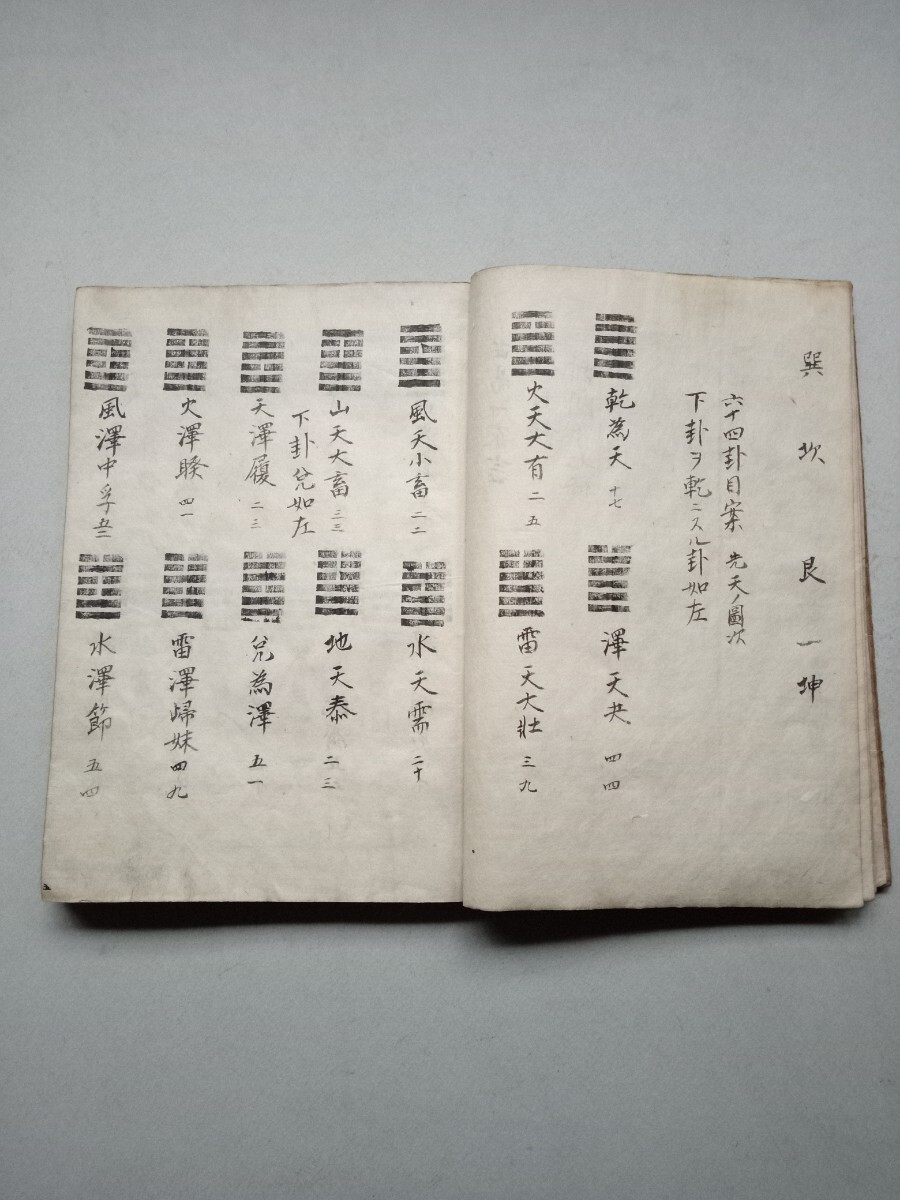 巽 坎 艮 一 坤
六十四卦目案 先天ノ圖次
下卦ヲ乾ニスル卦如左
乾為天 十七
澤天夬 四四
火天大有 二五
雷天大壯 三九
風天小畜 二二
水天需 二十
山天大畜 三三
地天泰 二三
下卦兌如左
天澤履 二三
兌為澤 五一
火澤睽 四一
雷澤歸妹 四九
風澤中孚
水澤節 五四